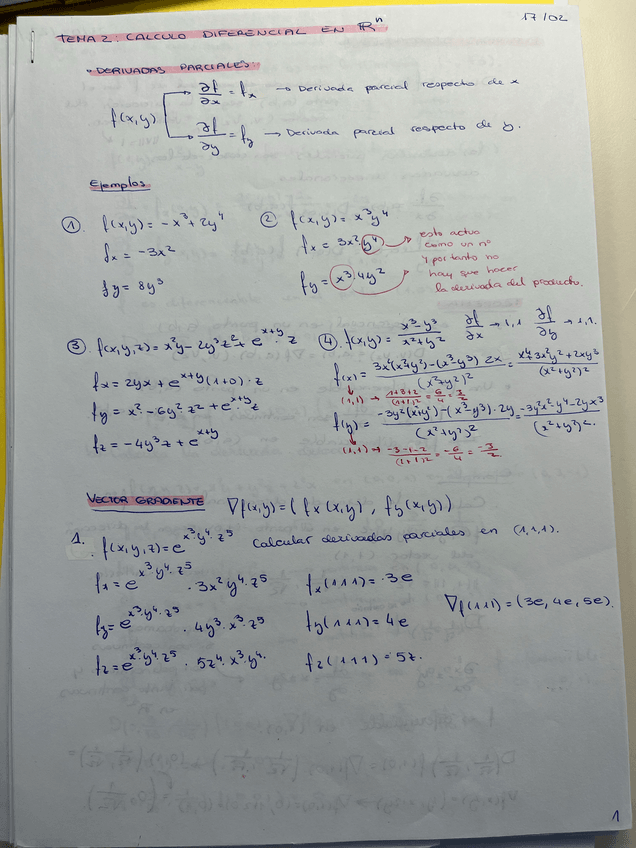 17/02
TEMA 2: CALCULO DIFERENCIAL EN ℝⁿ
• DERIVADAS PARCIALES:
f(x,y) → ∂f/∂x = fx → Derivada parcial respecto de x
→ ∂f/∂y = fy → Derivada parcial respecto de y.
Ejemplos
① f(x,y) = -x³ + 2y⁴
fx = -3x²
fy = 8y³
② f(x,y) = x³y⁴
fx = 3x² y⁴
fy = x³·4y²
esto actua
como un nº
y por tanto no
hay que hacer
la derivada del producto.
③ f(x,y,z) = x²y - 2y³z² + e^(x+y)·z
fx = 2yx + e^(x+y)(1+0)·z
fy = x² - 6y²z² + e^(x+y)·z
fz = -4y³z + e^(x+y)
④ f(x,y) = (x³-y³)/(x²+y²) ∂f/∂x → 1,1 ∂f/∂y → 1,1.
f(x) = (3x²(x²+y²) - (x³-y³)·2x)/(x²+y²)² = (x⁴+3x²y²+2xy³)/(x²+y²)²
(1,1) → (1+3+2)/(1+1)² = 6/4 = 3/2
f(y) = (-3y²(x²+y²) - (x³-y³)·2y)/(x²+y²)² = (-3y²x²-y⁴-2yx³)/(x²+y²)².
(1,1) → (-3-1-2)/(1+1)² = -6/4 = -3/2
VECTOR GRADIENTE ∇f(x,y) = (fx(x,y), fy(x,y))
1. f(x,y,z) = e^(x³·y⁴·z⁵) Calcular derivadas parciales en (1,1,1).
fx = e^(x³·y⁴·z⁵) · 3x²y⁴·z⁵ fx(111) = 3e
fy = e^(x³·y⁴·z⁵) · 4y³·x³·z⁵ fy(111) = 4e
∇f(111) = (3e, 4e, 5e).
fz = e^(x³·y⁴·z⁵) · 5z⁴·x³·y⁴. fz(111) = 5z.
1